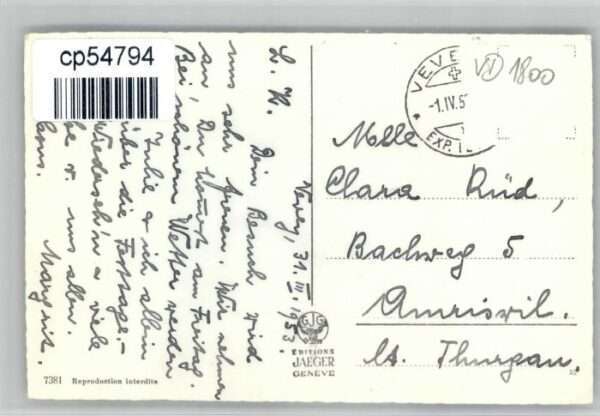 cp54794
Vevey, 31. III. 1953.
L. K.
Dein Besuch wird
uns sehr freuen. Wir nehmen
an, Du kommst am Freitag.
Bei schönem Wetter werden
Julie & ich allein
über die Festtage.-
Wiederseh'n & viele
v. uns allen.
Margrit.
VEVEY
-1.IV.5
EXP. L
VD 1800
Mlle
Clara Rüd,
Bachweg 5
Amriswil.
Kt. Thurgau.
GJG
EDITIONS
JAEGER
GENEVE
7381 Reproduction interdite